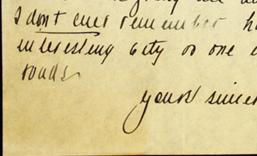 I don't ever remember
interesting city or one
roads.
yours since